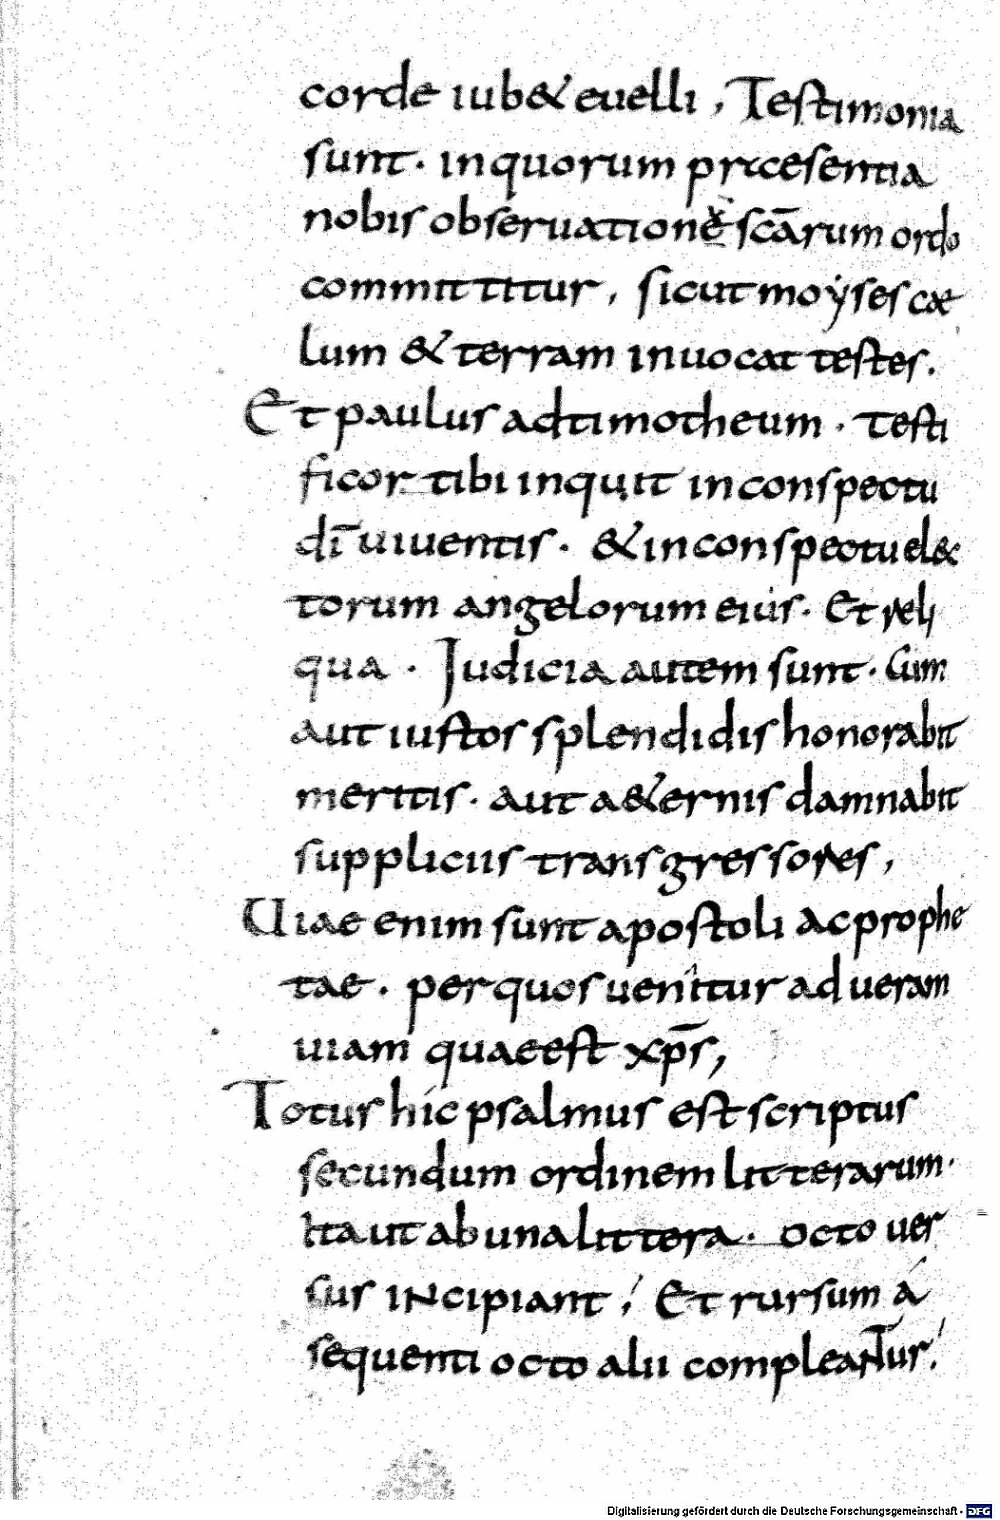 corde iub& euelli, Testimonia
sunt. in quorum præsentia
nobis obseruatione scārum ordo
committitur, sicut moẏses cæ
lum & terram inuocat testes.
Et paulus ad timotheum. Testi
ficor tibi inquit in conspectu
dī uiuentis. & in conspectu el&
torum angelorum eius. Et reli
qua. Iudicia autem sunt. Cum
aut iustos splendidis honorabit
meritis. aut a&ernis damnabit
suppliciis transgressores,
Uiae enim sunt apostoli ac prophe
tae. per quos uenitur ad ueram
uiam quae est xp̄s,
Totus hic psalmus est scriptus
secundum ordinem litterarum.
Ita ut ab una littera. octo uer
sus incipiant; Et rursum á
sequenti octo alii compleantur;
Digitalisierung gefördert durch die Deutsche Forschungsgemeinschaft - DFG